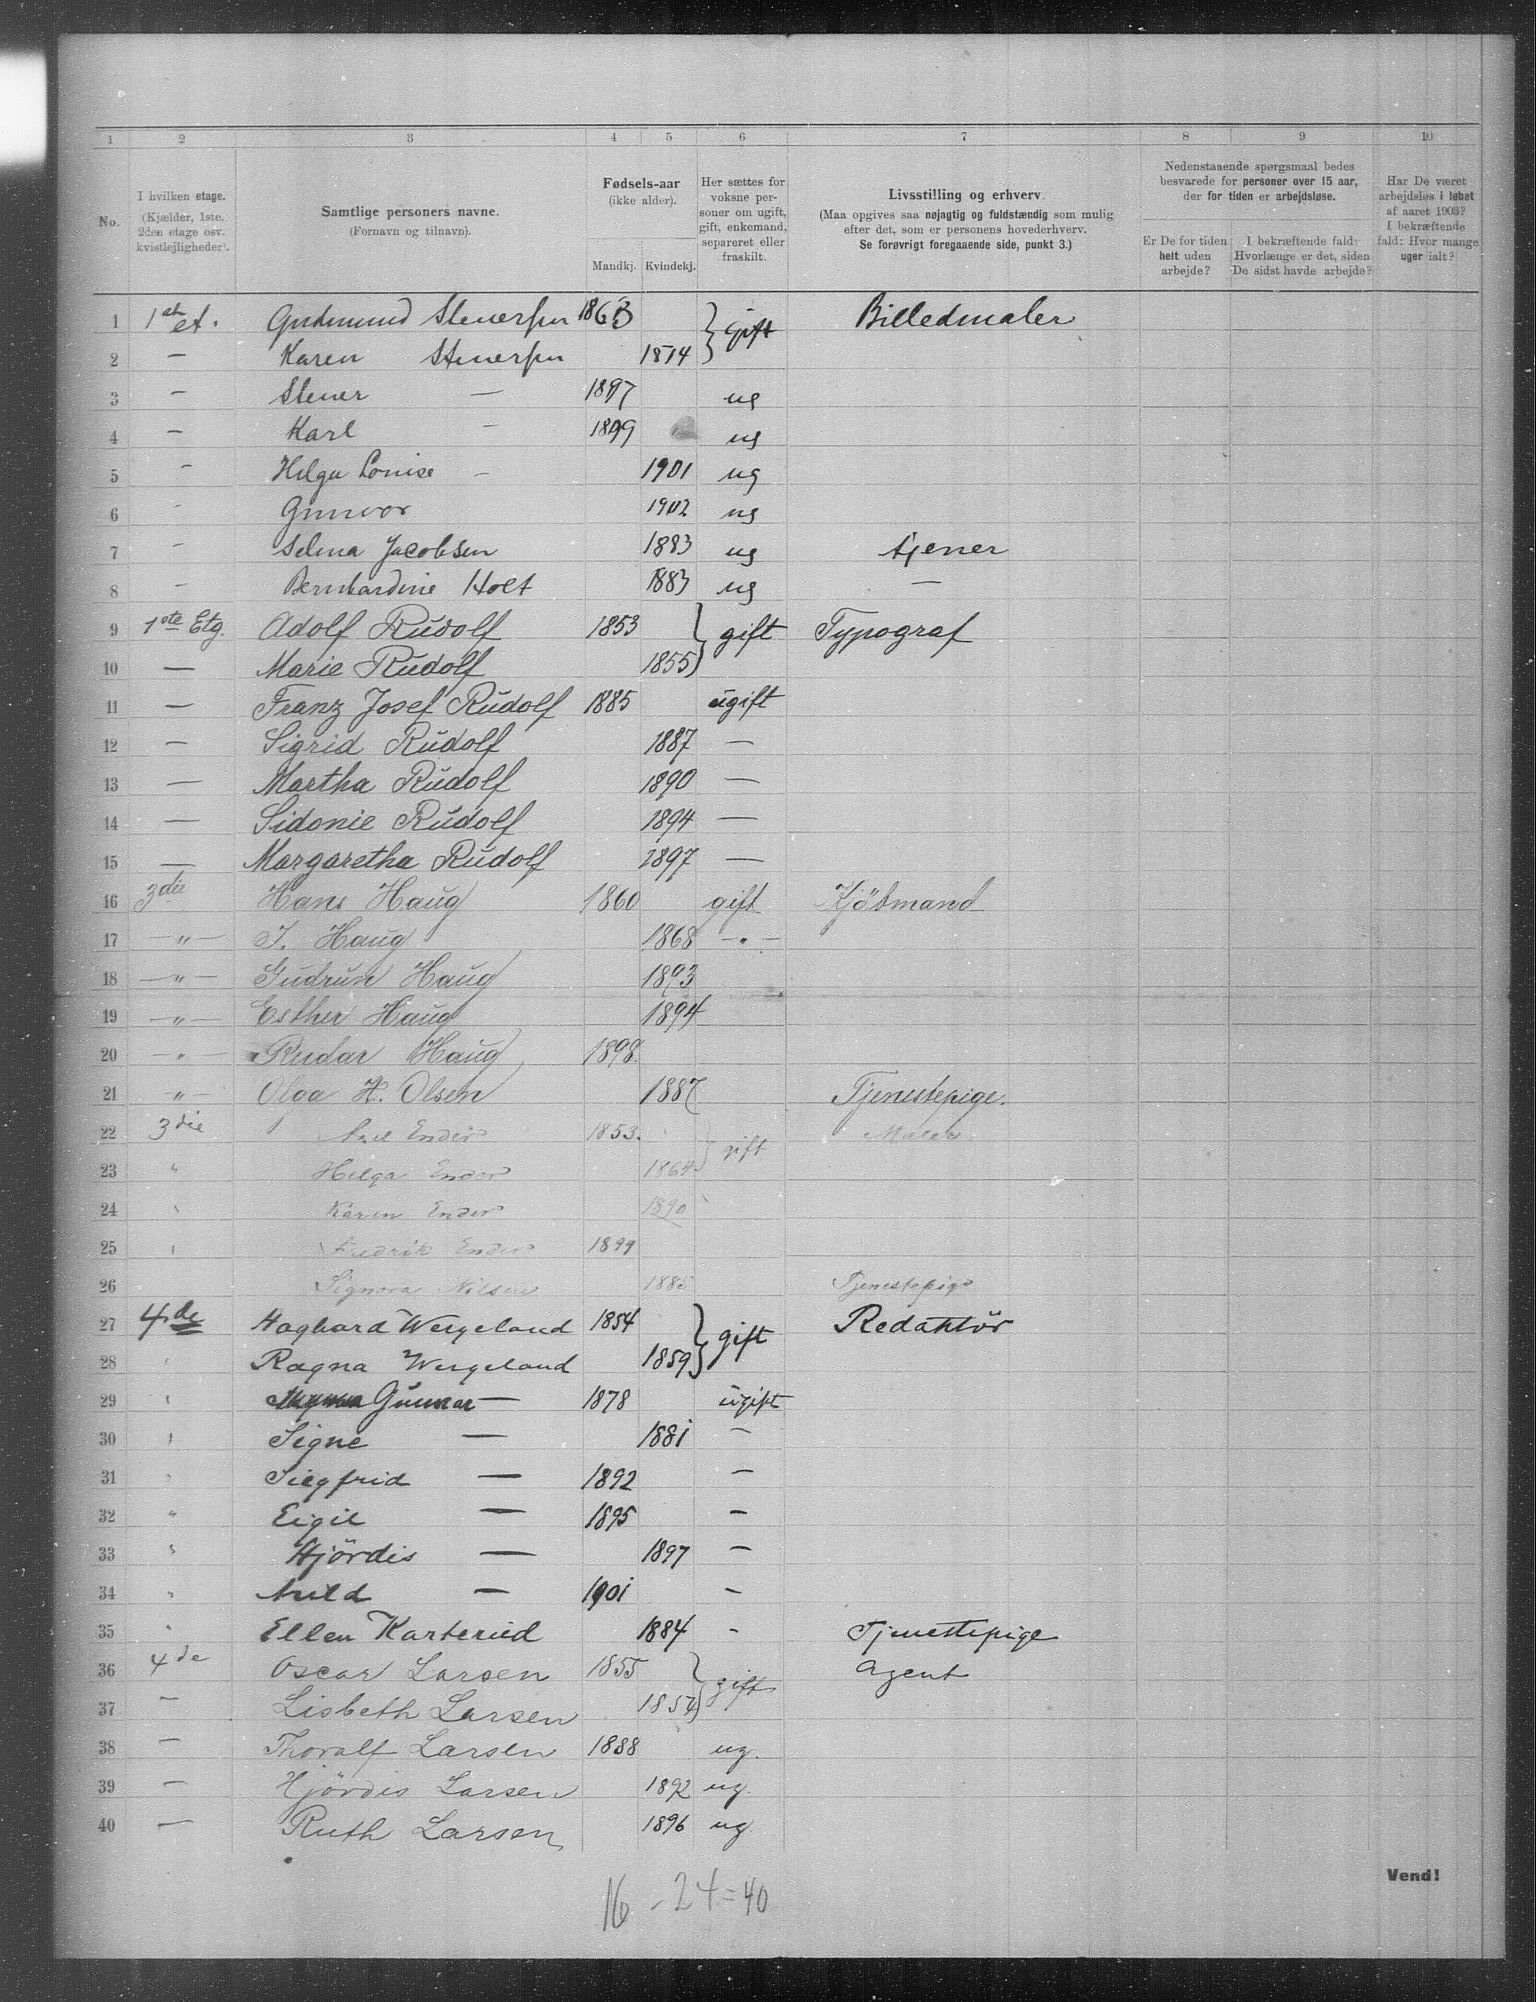 1 2 3 4 5 6 7 8 9 10
No. | I hvilken etage. (Kjælder, 1ste, 2den etage osv. kvistlejligheder). | Samtlige personers navne. (Fornavn og tilnavn). | Fødsels-aar (ikke alder). Mandkj. Kvindekj. | Her sættes for voksne personer om ugift, gift, enkemand, separeret eller fraskilt. | Livsstilling og erhverv. (Maa opgives saa nøjagtig og fuldstændig som mulig efter det, som er personens hovederhverv. Se forøvrigt foregaaende side, punkt 3.) | Nedenstaaende spørgsmaal bedes besvarede for personer over 15 aar, der for tiden er arbejdsløse. Er De for tiden helt uden arbejde? | I bekræftende fald: Hvorlænge er det, siden De sidst havde arbejde? | Har De været arbejdsløs i løbet af aaret 1903? I bekræftende fald: Hvor mange uger ialt?
1 1ste et. Gudmund Stenersen 1863 } gift Billedmaler
2 — Karen Stenersen 1874
3 — Stener — 1897 ug
4 — Karl — 1899 ug
5 — Helga Louise — 1901 ug
6 — Gunvor 1902 ug
7 — Selma Jacobsen 1883 ug tjener
8 — Bernhardine Holt 1883 ug —
9 1ste Etg. Adolf Rudolf 1853 } gift Typograf
10 — Marie Rudolf 1855
11 — Franz Josef Rudolf 1885 ugift
12 — Sigrid Rudolf 1887 —
13 — Martha Rudolf 1890 —
14 — Sidonie Rudolf 1894 —
15 — Margaretha Rudolf 1897 —
16 3die Hans Haug 1860 gift Kjöbmand
17 —"— J. Haug 1868 —"—
18 —"— Gudrun Haug 1893
19 —"— Esther Haug 1894
20 —"— Haug 1898.
21 —"— Olga H. Olsen 1887 Tjenestepige.
22 3die Axel Ender 1853. } gift Maler
23 " Helga Ender 1864
24 " Karen Ender 1890
25 " Fredrik Ender 1899
26 Signora Nilsen 1885 Tjenestepige
27 4de Hagbard Wergeland 1854 } gift Redaktör
28 " Ragna Wergeland 1859
29 " Gunnar — 1878 ugift
30 " Signe — 1881 —
31 " Siegfrid — 1892 —
32 " Eigil — 1895 —
33 " Hjördis — 1897 —
34 " — 1901 —
35 " Ellen 1884 - Tjenestepige
36 4de Oscar Larsen 1855 } gift Agent
37 — Lisbeth Larsen 1854
38 — Thoralf Larsen 1888 ug.
39 — Hjördis Larsen 1892 ug.
40 — Ruth Larsen 1896 ug.
Vend!
16 - 24 = 40